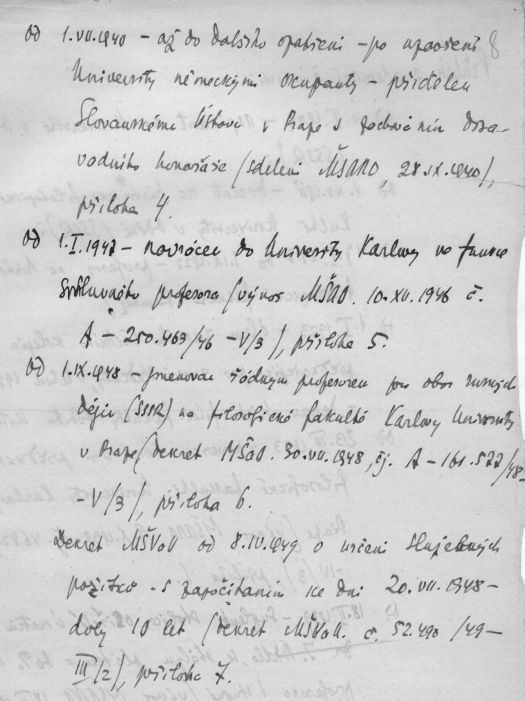 8
od 1.VII.1940 – až do dalšího opatření – po uzavření
University německými okupanty – přidělen
Slovanskému Ústavu v Praze s zachováním dosa-
vadního honoráře /sdělení MŠANO, 28.IX.1940/,
příloha 4.
od 1.I.1947 – navrácen do University Karlovy ve funkci
smluvního profesora /výnos MŠAO. 10.XII.1946 č.
A – 250.463/46 – V/3/, příloha 5.
od 1.IX.1948 – jmenován řádným profesorem pro obor
dějin (SSSR) na filosofické fakultě Karlovy University
v Praze /dekret MŠAO. 30.VII.1948, čj. A – 161.522/48-
- V/3/, příloha 6.
Dekret MŠVaU od 8.IV.1949 o určení služebných
požitků - s započítáním ke dni 20.VII.1948 –
doby 10 let /dekret MŠVaU. č. 52.490/49 –
III/2/, příloha 7.